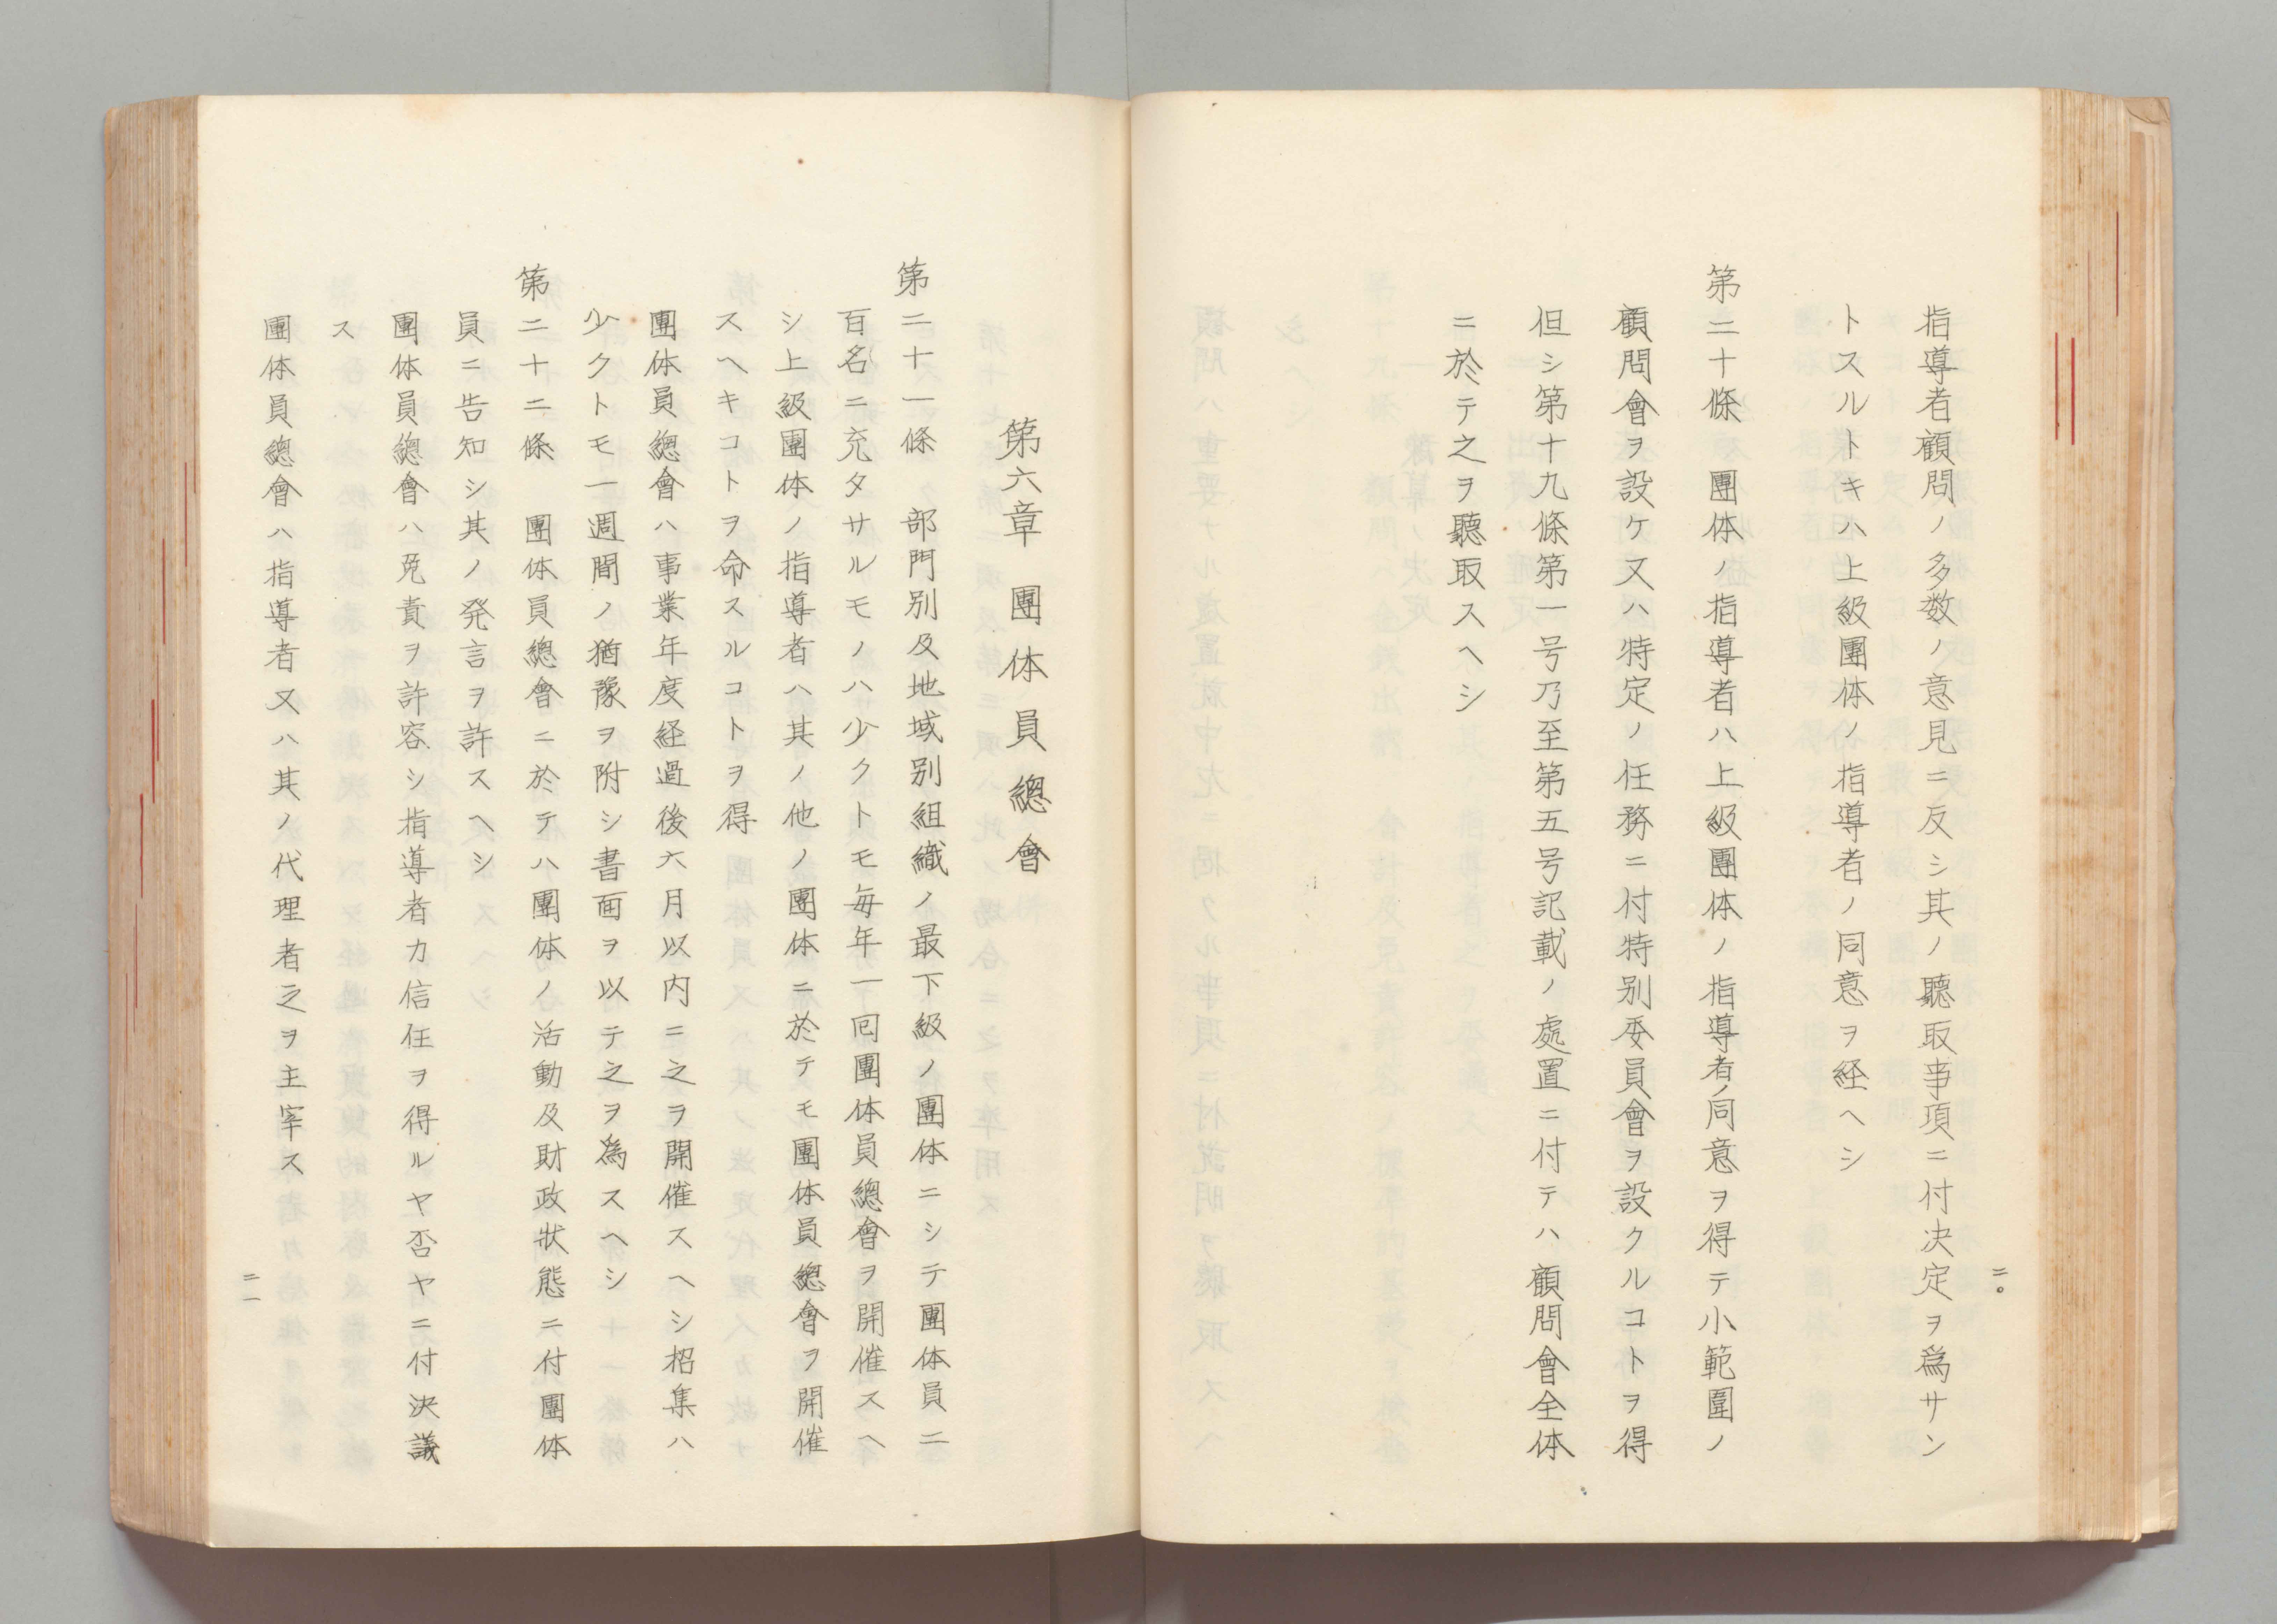 指導者顧問ノ多数ノ意見ニ反シ其ノ聽取事項ニ付決定ヲ爲サン
トスルトキハ上級團体ノ指導者ノ同意ヲ経ヘシ
第二十條　團体ノ指導者ハ上級團体ノ指導者ノ同意ヲ得テ小範圍ノ
顧問會ヲ設ケ又ハ特定ノ任務ニ付特別委員會ヲ設クルコトヲ得
但シ第十九條第一号乃至第五号記載ノ處置ニ付テハ顧問會全体
ニ於テ之ヲ聽取スヘシ
二〇
第六章　團体員總會
第二十一條　部門別及地域別組織ノ最下級ノ團体ニシテ團体員二
百名ニ充タサルモノハ少クトモ毎年一回團体員總會ヲ開催スヘ
シ上級團体ノ指導者ハ其ノ他ノ團体ニ於テモ團体員總會ヲ開催
スヘキコトヲ命スルコトヲ得
團体員總會ハ事業年度経過後六月以内ニ之ヲ開催スヘシ招集ハ
少クトモ一週間ノ猶豫ヲ附シ書面ヲ以テ之ヲ爲スヘシ
第二十二條　團体員總會ニ於テハ團体ノ活動及財政狀態ニ付團体
員ニ告知シ其ノ発言ヲ許スヘシ
團体員總會ハ免責ヲ許容シ指導者カ信任ヲ得ルヤ否ヤニ付決議
ス
團体員總會ハ指導者又ハ其ノ代理者之ヲ主宰ス
二一